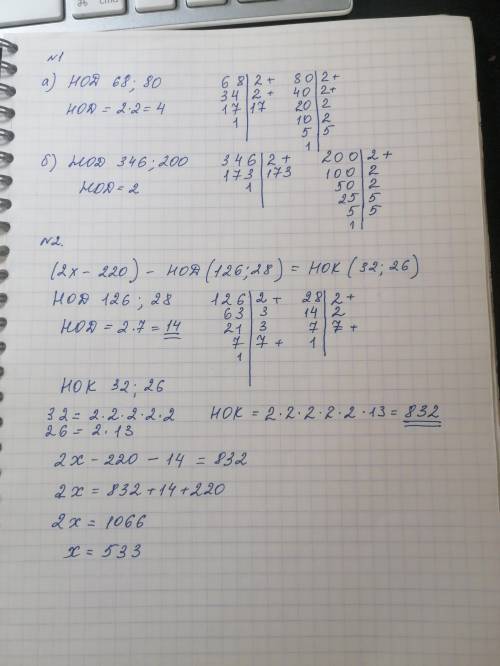 N1
а) НОД 68; 80
НОД = 2·2 = 4
68 | 2 +
34 | 2 +
17 | 17
1
80 | 2 +
40 | 2 +
20 | 2
10 | 2
5 | 5
1
б) НОД 346; 200
НОД = 2
346 | 2 +
173 | 173
1
200 | 2 +
100 | 2
50 | 2
25 | 5
5 | 5
1
N2.
(2x - 220) - НОД (126; 28) = НОК (32; 26)
НОД 126; 28
НОД = 2·7 = 14
126 | 2 +
63 | 3
21 | 3
7 | 7 +
1
28 | 2 +
14 | 2
7 | 7 +
1
НОК 32; 26
32 = 2·2·2·2·2
26 = 2·13
НОК = 2·2·2·2·2·13 = 832
2x - 220 - 14 = 832
2x = 832 + 14 + 220
2x = 1066
x = 533